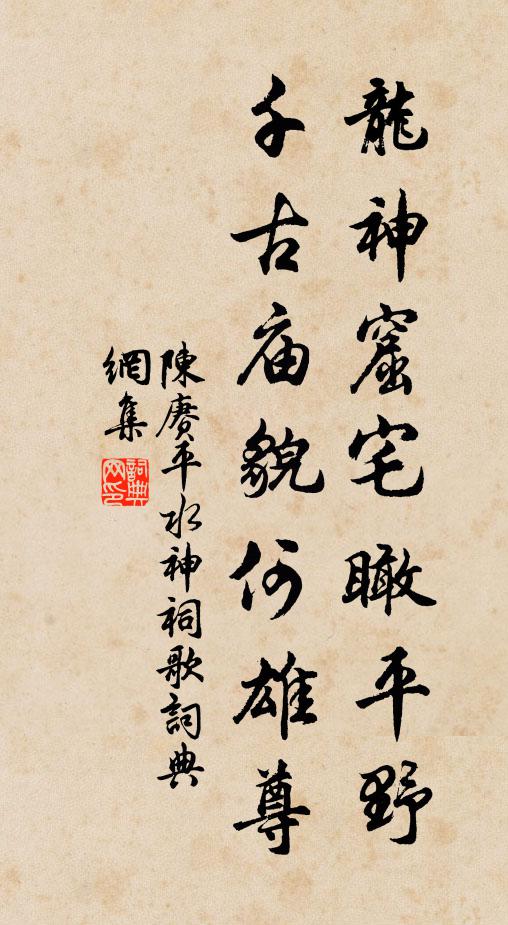 龍神窟宅瞰平野
千古庙貌何雄尊
陳赓平水神祠歌詞典
網集
詞典
网印